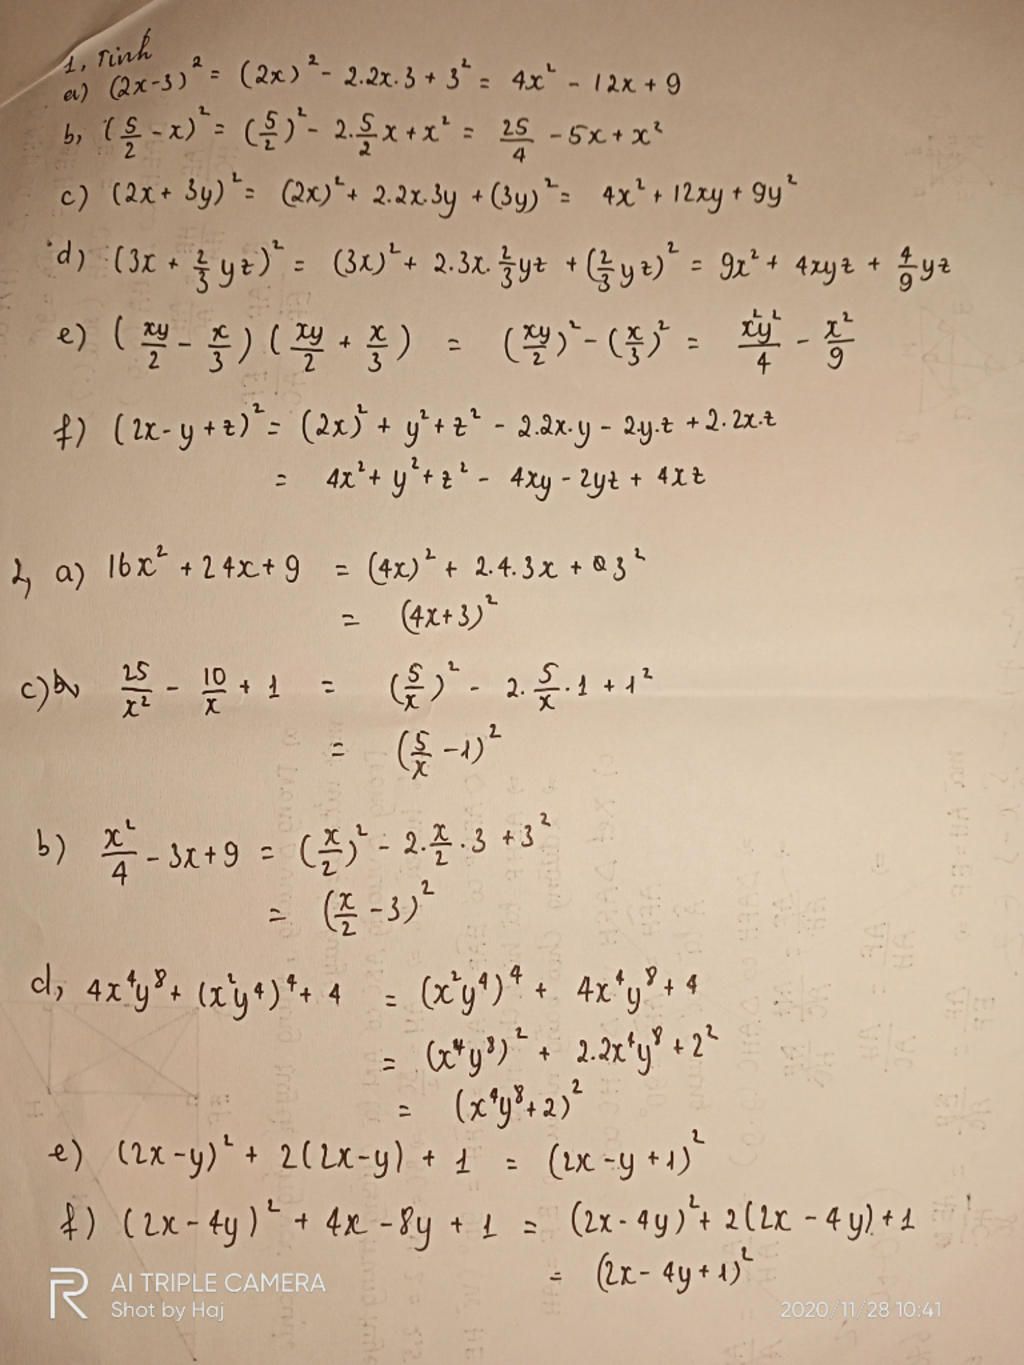 1, Tính
a) (2x-3)² = (2x)² - 2.2x.3 + 3² = 4x² - 12x + 9
b, (5/2 - x)² = (5/2)² - 2.5/2x + x² = 25/4 - 5x + x²
c) (2x + 3y)² = (2x)² + 2.2x.3y + (3y)² = 4x² + 12xy + 9y²
d) (3x + 2/3 yz)² = (3x)² + 2.3x.2/3yz + (2/3 yz)² = 9x² + 4xyz + 4/9 yz
e) (xy/2 - x/3) (xy/2 + x/3) = (xy/2)² - (x/3)² = x²y²/4 - x²/9
f) (2x - y + z)² = (2x)² + y² + z² - 2.2x.y - 2y.z + 2.2x.z
= 4x² + y² + z² - 4xy - 2yz + 4xz
2, a) 16x² + 24x + 9 = (4x)² + 2.4.3x + 3²
= (4x+3)²
c) 25/x² - 10/x + 1 = (5/x)² - 2.5/x.1 + 1²
= (5/x - 1)²
b) x²/4 - 3x + 9 = (x/2)² - 2.x/2.3 + 3²
= (x/2 - 3)²
d, 4x⁴y⁸ + (x²y⁴)⁴ + 4 = (x²y⁴)⁴ + 4x⁴y⁸ + 4
= (x⁴y⁸)² + 2.2x⁴y⁸ + 2²
= (x⁴y⁸ + 2)²
e) (2x - y)² + 2(2x - y) + 1 = (2x - y + 1)²
f) (2x - 4y)² + 4x - 8y + 1 = (2x - 4y)² + 2(2x - 4y) + 1
= (2x - 4y + 1)²
AI TRIPLE CAMERA
Shot by Haj
2020/11/28 10:41